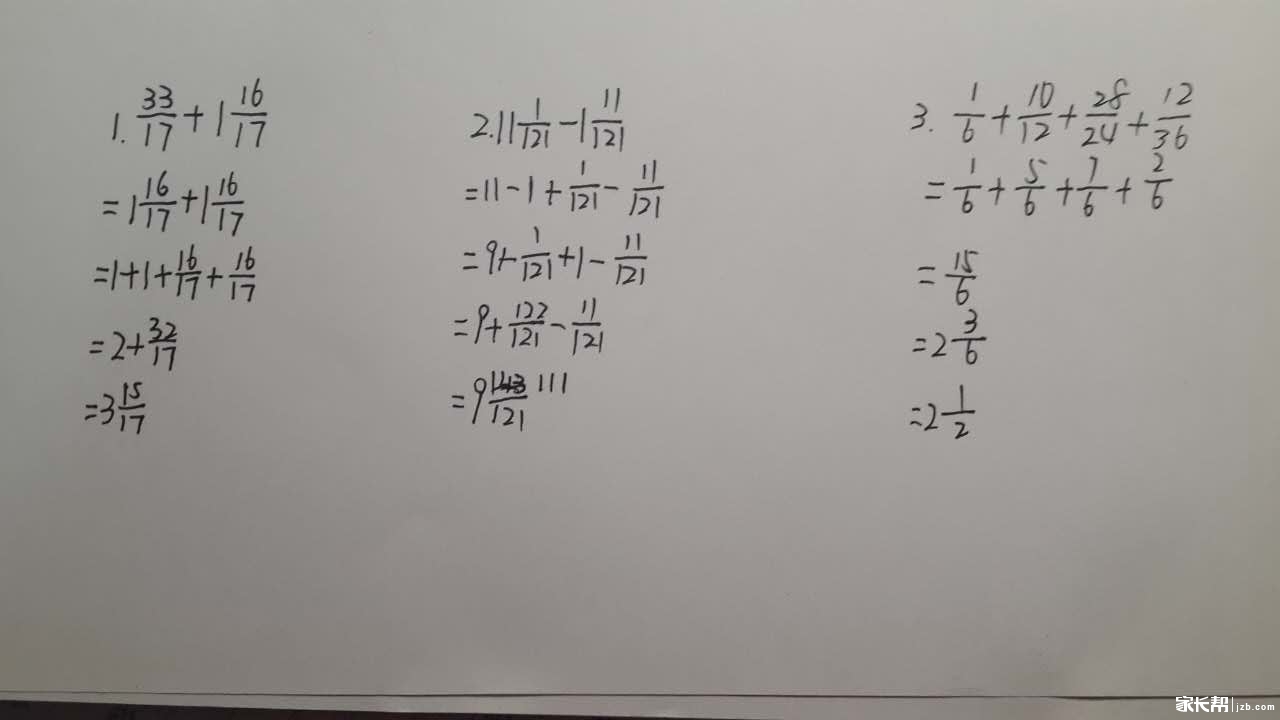 1. 33/17 + 1 16/17
= 1 16/17 + 1 16/17
= 1 + 1 + 16/17 + 16/17
= 2 + 32/17
= 3 15/17
2. 11 1/121 - 1 11/121
= 11 - 1 + 1/121 - 11/121
= 9 + 1/121 + 1 - 11/121
= 9 + 122/121 - 11/121
= 9 111/121
3. 1/6 + 10/12 + 28/24 + 12/36
= 1/6 + 5/6 + 7/6 + 2/6
= 15/6
= 2 3/6
= 2 1/2
家长帮 jzb.com